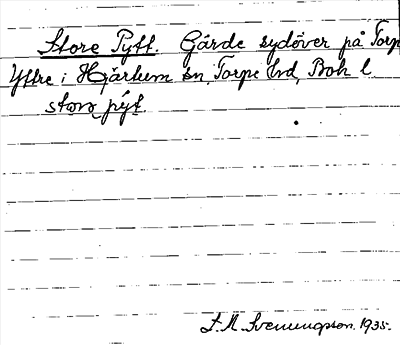 Store Pytt. Gärde sydöver på Torp
Yttre i Hjärtum sn, Torpe hd, Boh l
storə pýt.
S. M. Svenungson. 1935.